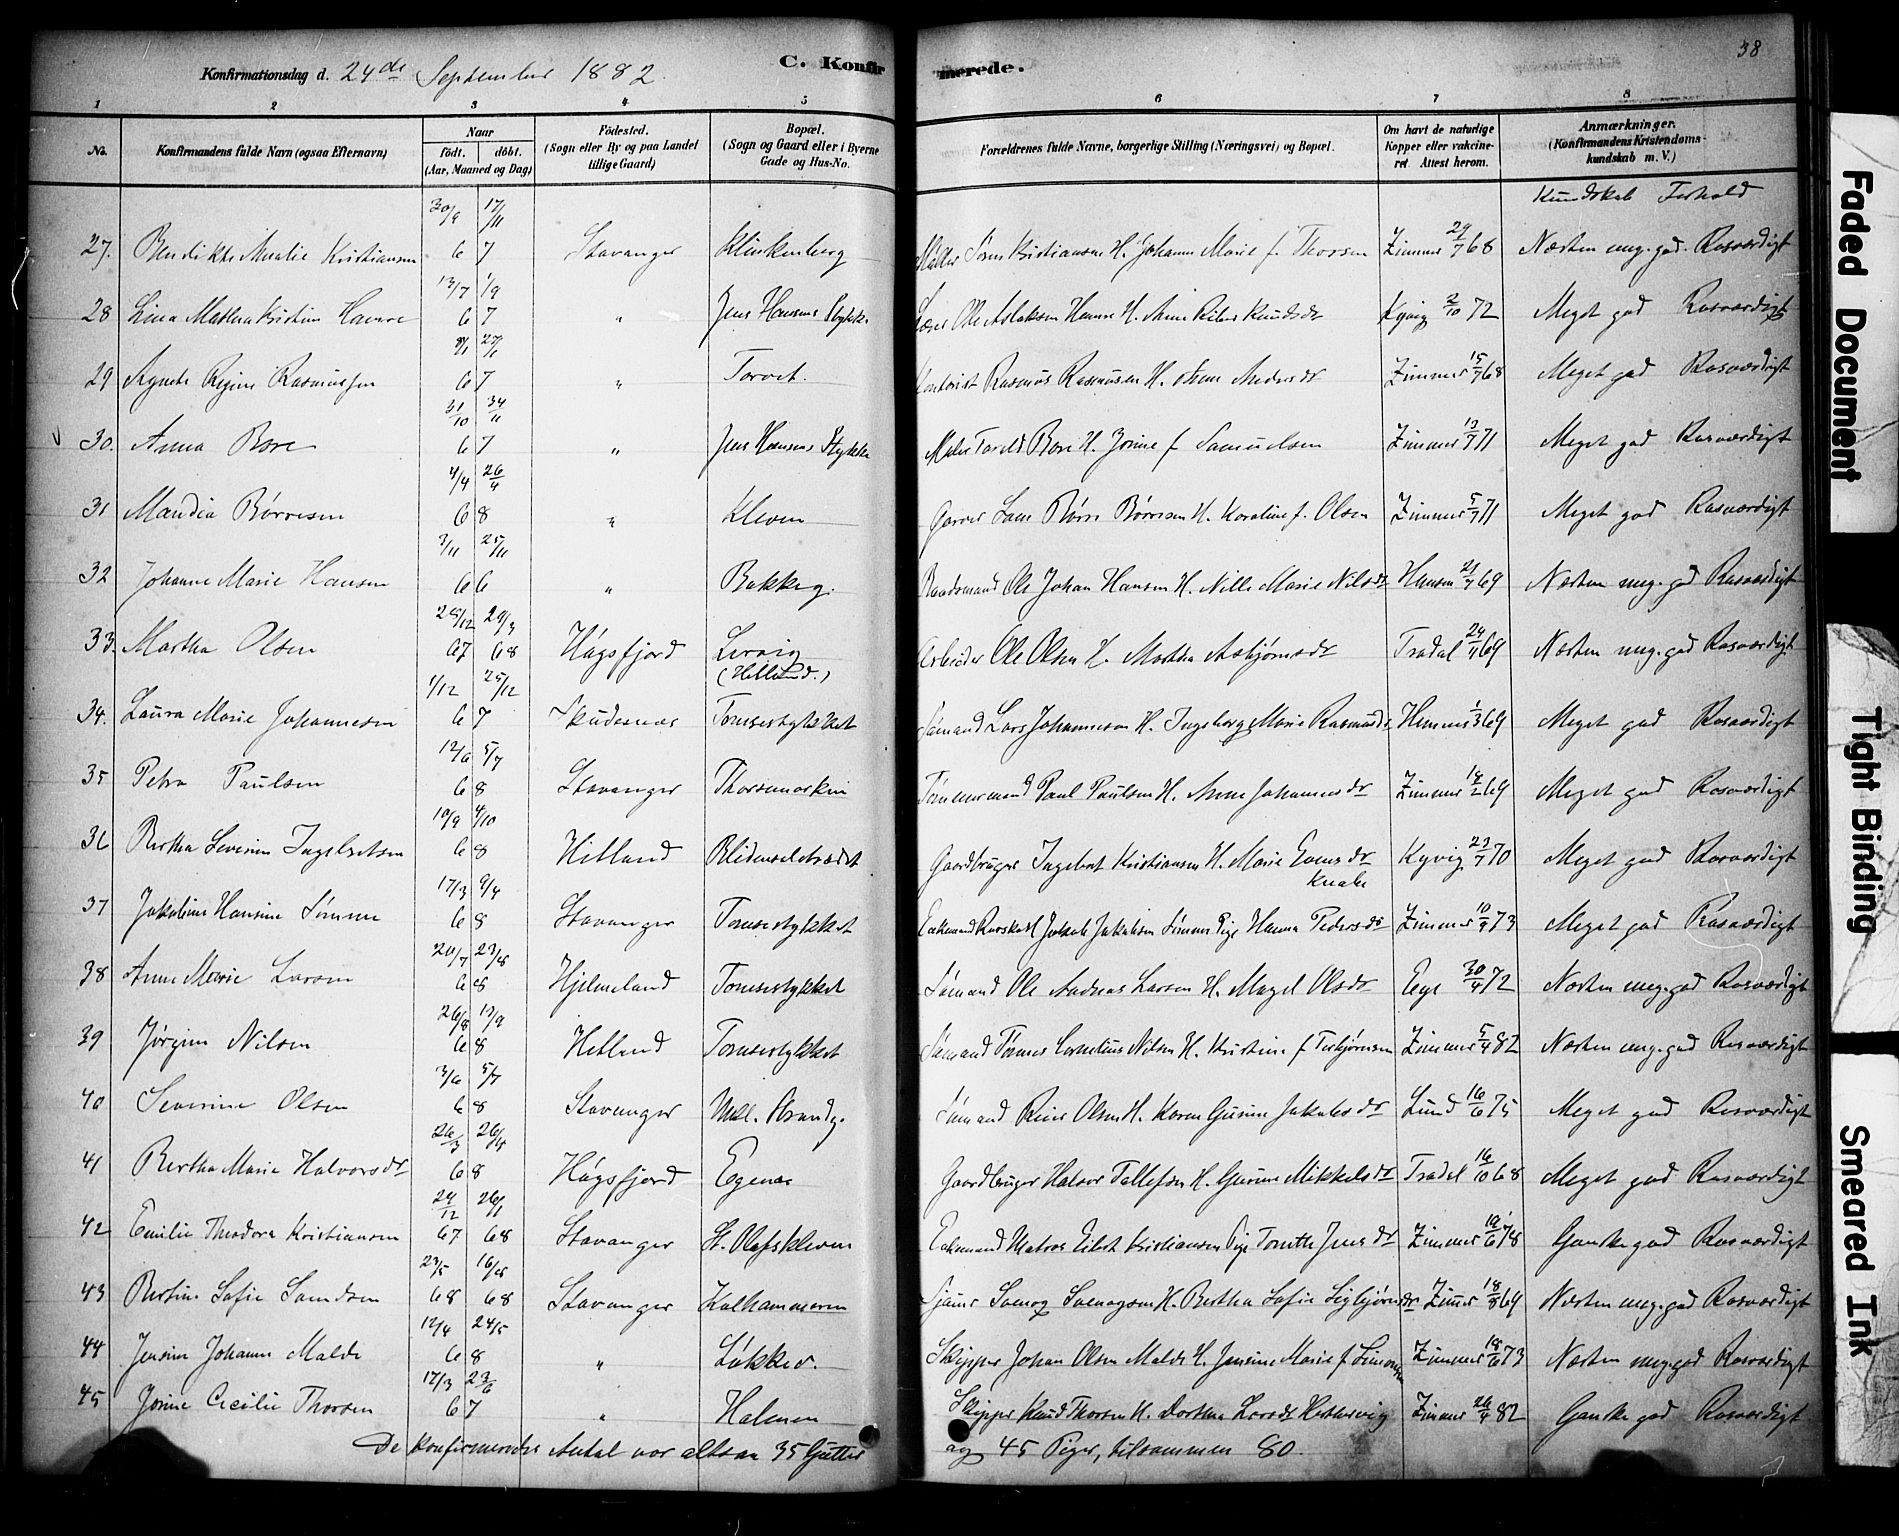 Konfirmationsdag d. 24de September 1882.
C. Konfirmerede.
38
1 2 3 4 5 6 7 8
No.
Konfirmandens fulde Navn (ogsaa Efternavn)
Naar
födt. döbt.
(Aar, Maaned og Dag)
Födested.
(Sogn eller By og paa Landet
tillige Gaard)
Bopæl.
(Sogn og Gaard eller i Byerne
Gade og Hus-No.
Forældrenes fulde Navne, borgerlige Stilling (Næringsvei) og Bopæl.
Om havt de naturlige
Kopper eller vakcine-
ret. Attest herom.
Anmærkninger.
(Konfirmandens Kristendoms-
kundskab m. V.)
Kundskab Forhold
27. Bendikte Amalie Kristiansen 30/9 67 17/11 Stavanger Klinkenberg Søren Kristiansen H. Johanne Marie f. Thorsen Zimmer 29/7 68 Næsten meg. god. Rosværdigt
28 Hamre 13/7 67 1/9 " Jens Hansens Stykke Ole Aslaksen Hamre H. Knudsdr Kyvig 2/10 72 Meget god Rosværdigt
29 Agnete Regine Rasmussen 67 " Torvet. Rasmus Rasmussen H. Anne Andersdr Zimmer 15/7 68 Meget god Rosværdigt
30. Anna Bore 31/10 67 " Jens Hansens Stykke Maler Bore H. Jorine f. Samuelsen Zimmer 13/7 71 Meget god Rosværdigt
31 Mandia Børresen 4/4 68 26/4 " Kleven Garver Børresen H. Karoline f. Olsen Zimmer 5/7 71 Meget god Rosværdigt
32 Johanne Marie Hansen 3/11 66 25/11 " Bakkeg. Baadsmand Ole Johan Hansen H. Nille Marie Nilsdr Hansen 21/7 69 Næsten meg. god Rosværdigt
33. Martha Olsen 67 68 Høgsfjord Lervig (Hetland.) Arbeider Ole Olsen H. Martha Asbjørnsdr Tradal 69 Næsten meg. god Rosværdigt
34. Laura Marie Johannesen 1/12 67 25/12 Skudesnes Tomsestykket Sømand Lars Johannesen H. Ingeborg Marie Rasmusdr 1/3 69 Meget god Rosværdigt
35 Petra Paulsen 12/6 68 5/7 Stavanger Thorsmarken Tømmermand Paul Paulsen H. Anne Johannesdr Zimmer 18/2 69 Meget god Rosværdigt
36 Bertha Severine Ingebretsen 10/9 68 4/10 Hetland Blidenselstrædet Gaardbruger Ingebret Kristiansen H. Marie Evensdr Kyvig 23/7 70 Meget god Rosværdigt
Knabe
37 Jakobine Hansine Sømme 17/3 68 9/4 Stavanger Tomsestykket Jakob Jakobsen Sømme Pige Hanna Pedersdr Zimmer 10/9 73 Meget god Rosværdigt
38 Anne Marie Larsen 20/7 68 23/8 Hjelmeland Tomsestykket Sømand Ole Andreas Larsen H. Olsdr 30/4 72 Næsten meg. god Rosværdigt
39 Jørgine Nilsen 26/8 68 13/9 Hetland Tomsestykket Sømand Tønnes Cornelius Nilsen H. Kristine f. Torbjørnsen Zimmer 5/4 82 Næsten meg. god Rosværdigt
40 Severine Olsen 3/6 68 5/7 Stavanger Strandg. Sømand Olsen H. Karen Gurine Jakobsdr Lund 16/6 75 Meget god Rosværdigt
41 Bertha Marie Halvorsdr 26/3 68 Høgsfjord Egenes Gaardbruger Halvor Tollefsen H. Gurine Mikkelsdr Tradal 16/10 68 Meget god Rosværdigt
42 Emilie Theodora Kristiansen 24/12 67 26/1 68 Stavanger St. Olafskleven Matros Kristiansen Pige Jensdr Zimmer 78 Ganske god Rosværdigt
43 Bertine Sofie 23/5 68 16/8 68 Stavanger Kalhammeren H. Bertha Sofie Sigbjørnsdr Zimer 18/8 69 Næsten meg. god Rosværdigt
44 Jensine Johanne Malde 12/4 68 24/5 " Løkkev. Skipper Johan Olsen Malde H. Jensine Marie f. Simonsen Zimmer 18/6 73 Næsten meg. god Rosværdigt
45 Jorine Cicilie Thorsen 17/3 67 23/6 " Holmen Skipper Knud Thorsen H. Dorthea Larsdr Zimmer 26/4 82 Ganske god Rosværdigt
De konfirmeredes Antal var altsaa 35 Gutter
og 45 Piger, tilsammen 80.
Faded Document
Tight Binding
Smeared Ink